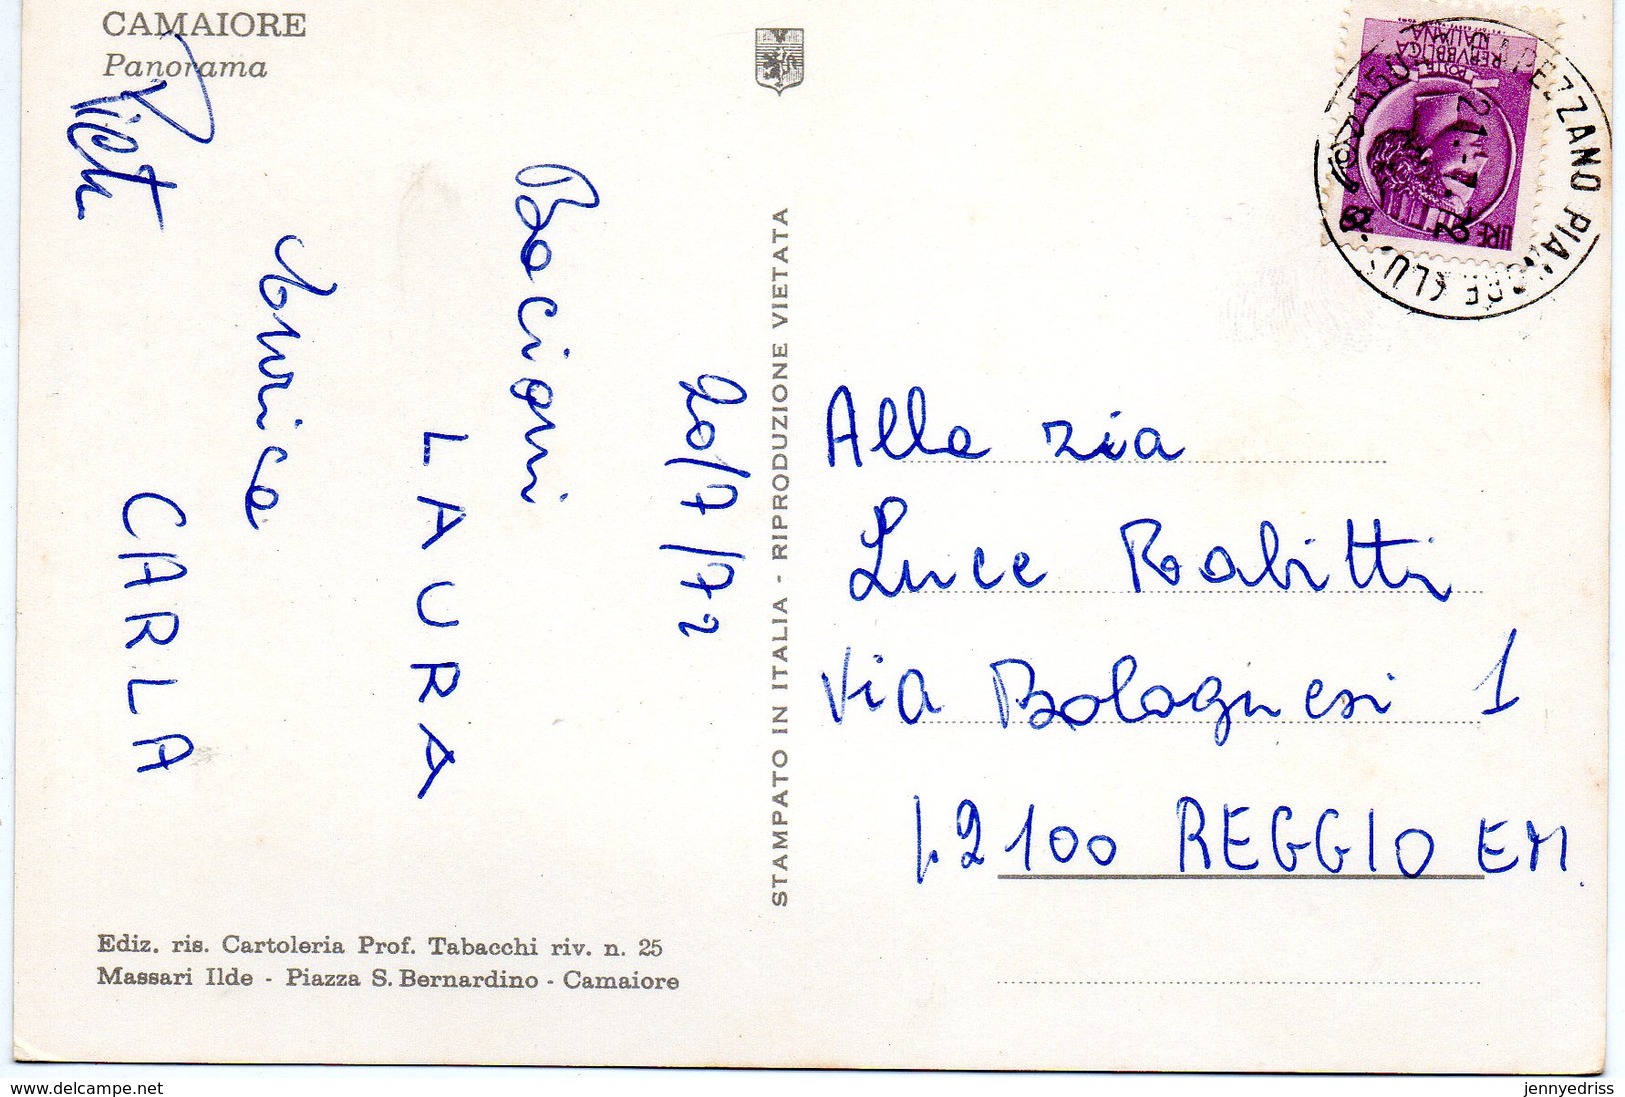 CAMAIORE
Panorama
20/7/72
Bacioni
LAURA
CARLA
STAMPATO IN ITALIA - RIPRODUZIONE VIETATA
REPVBBLICA
ITALIANA
POSTE
LIRE
Alla zia
Luce Rabitti
Via Bolognesi 1
42100 REGGIO EM.
Ediz. ris. Cartoleria Prof. Tabacchi riv. n. 25
Massari Ilde - Piazza S. Bernardino - Camaiore
www.delcampe.net
jennyedriss